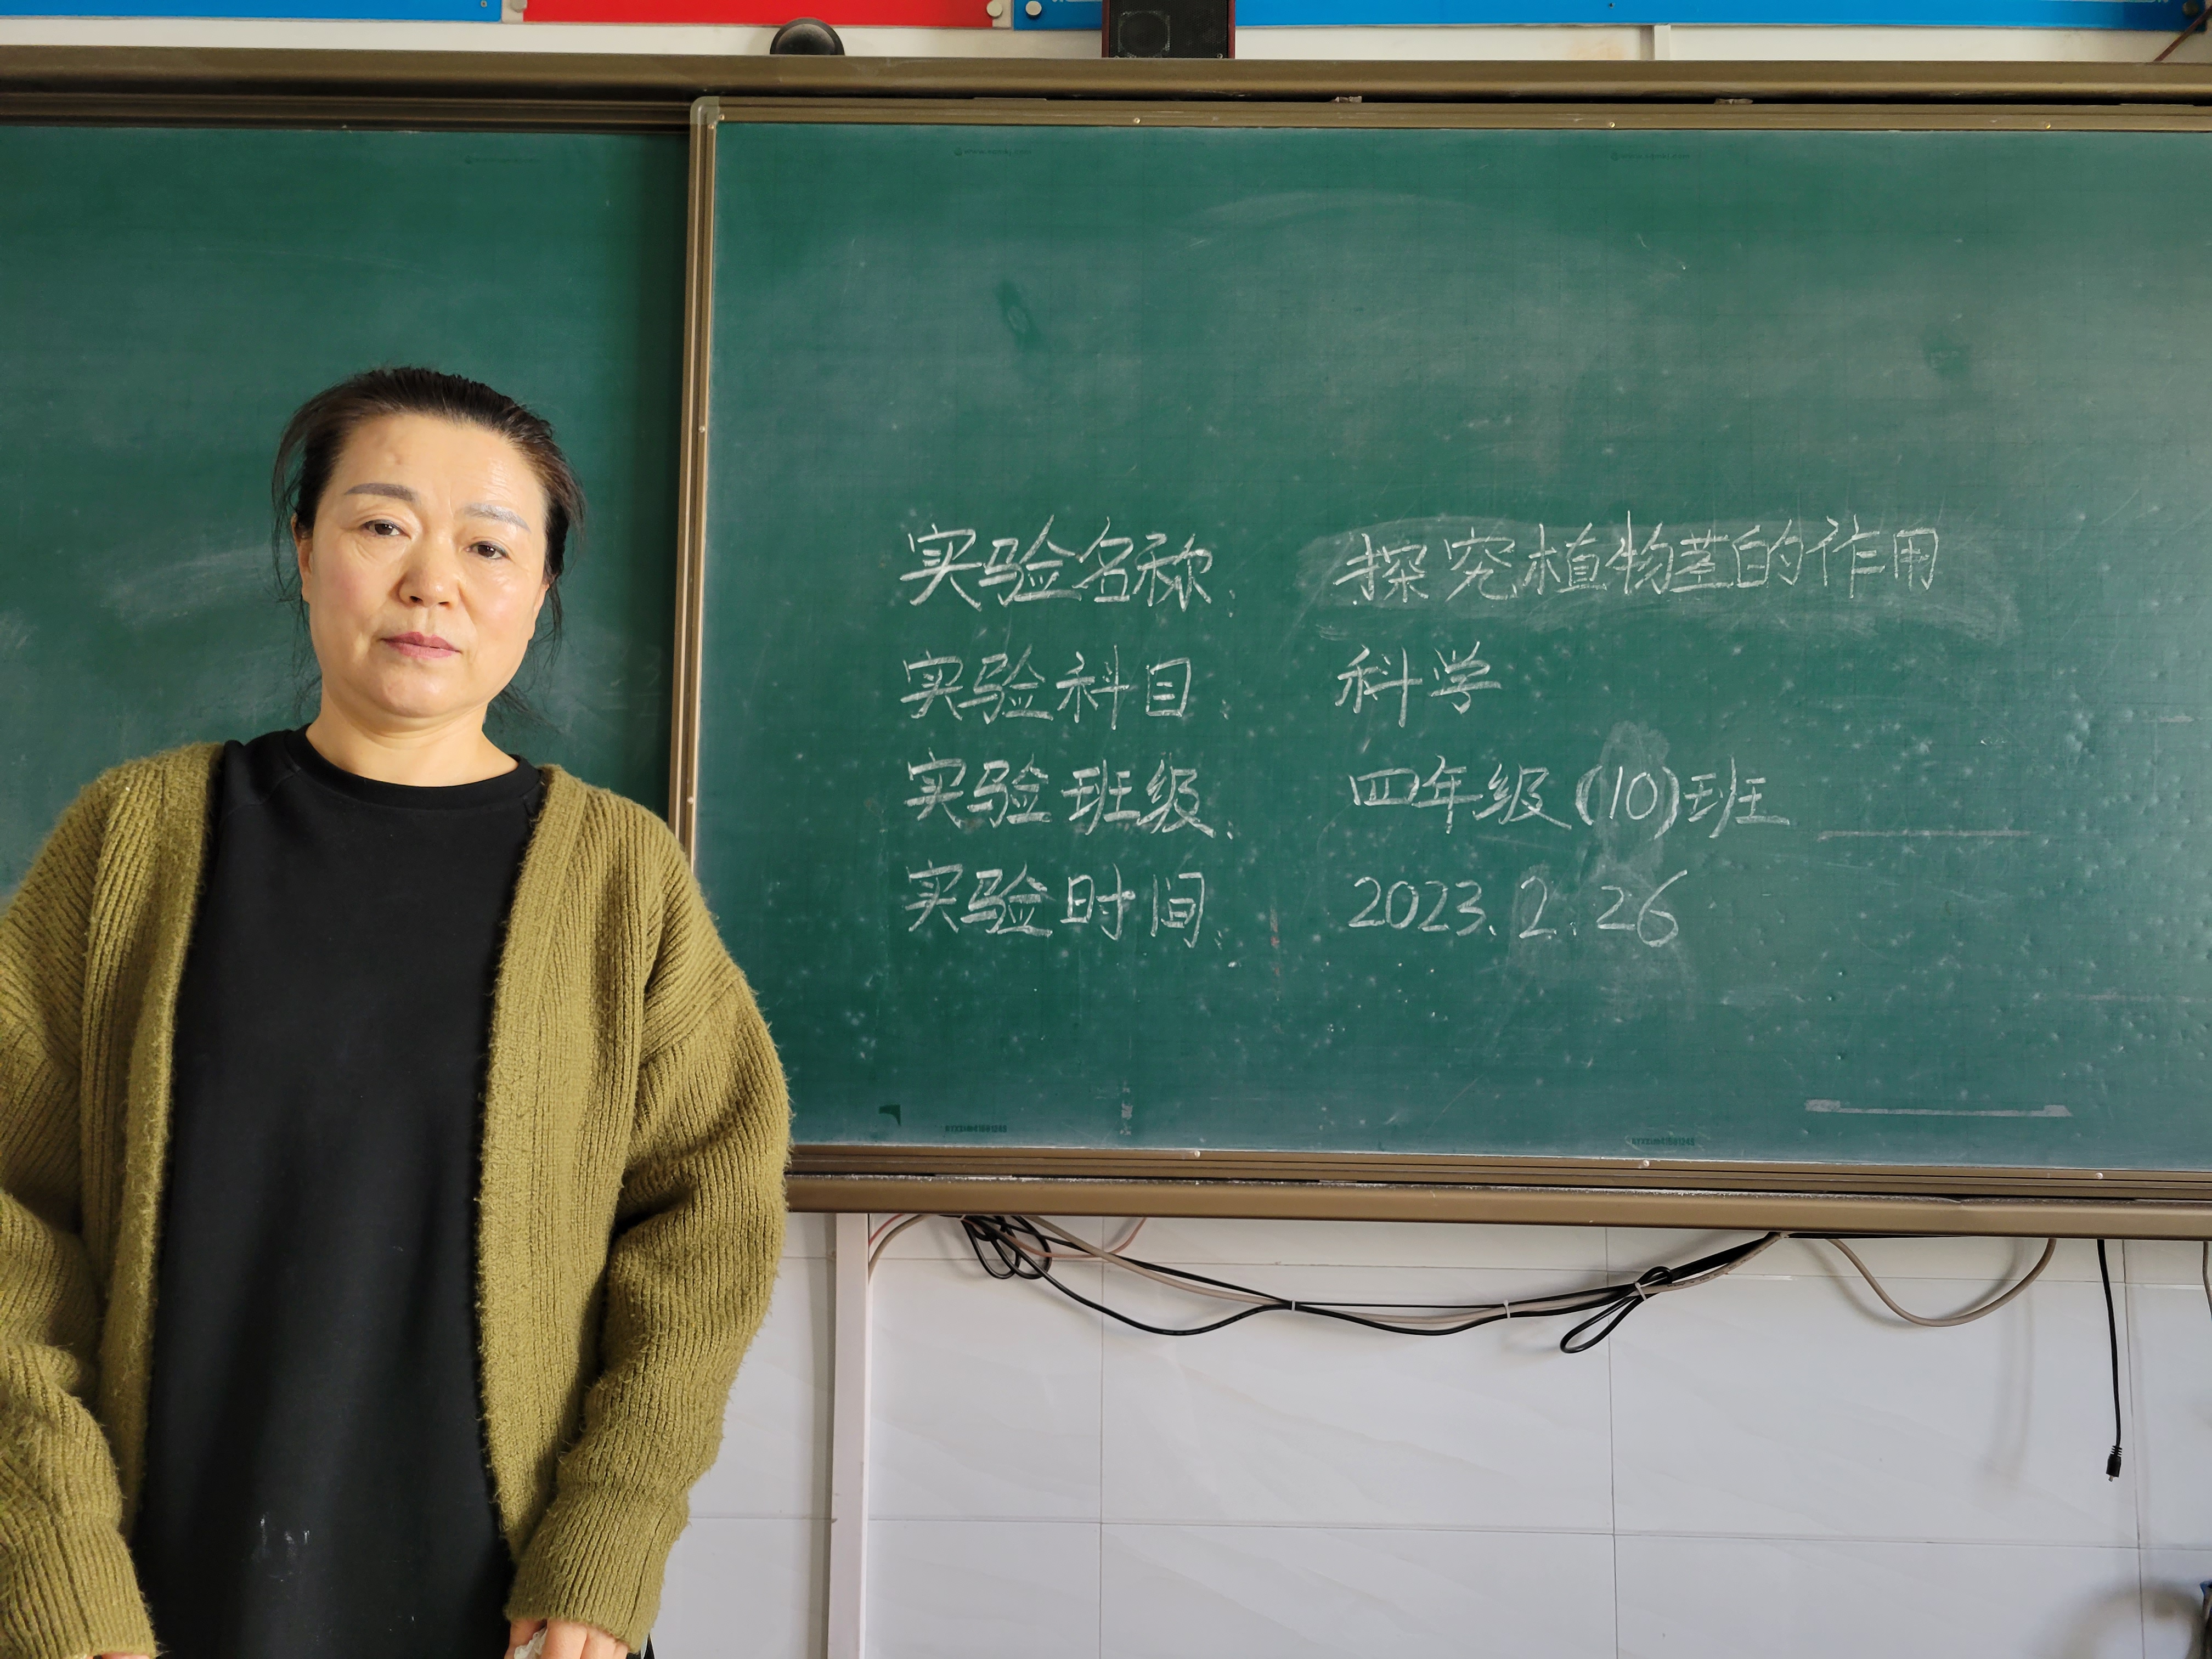 实验名称: 探究植物茎的作用
实验科目: 科学
实验班级: 四年级(10)班
实验时间: 2023.2.26